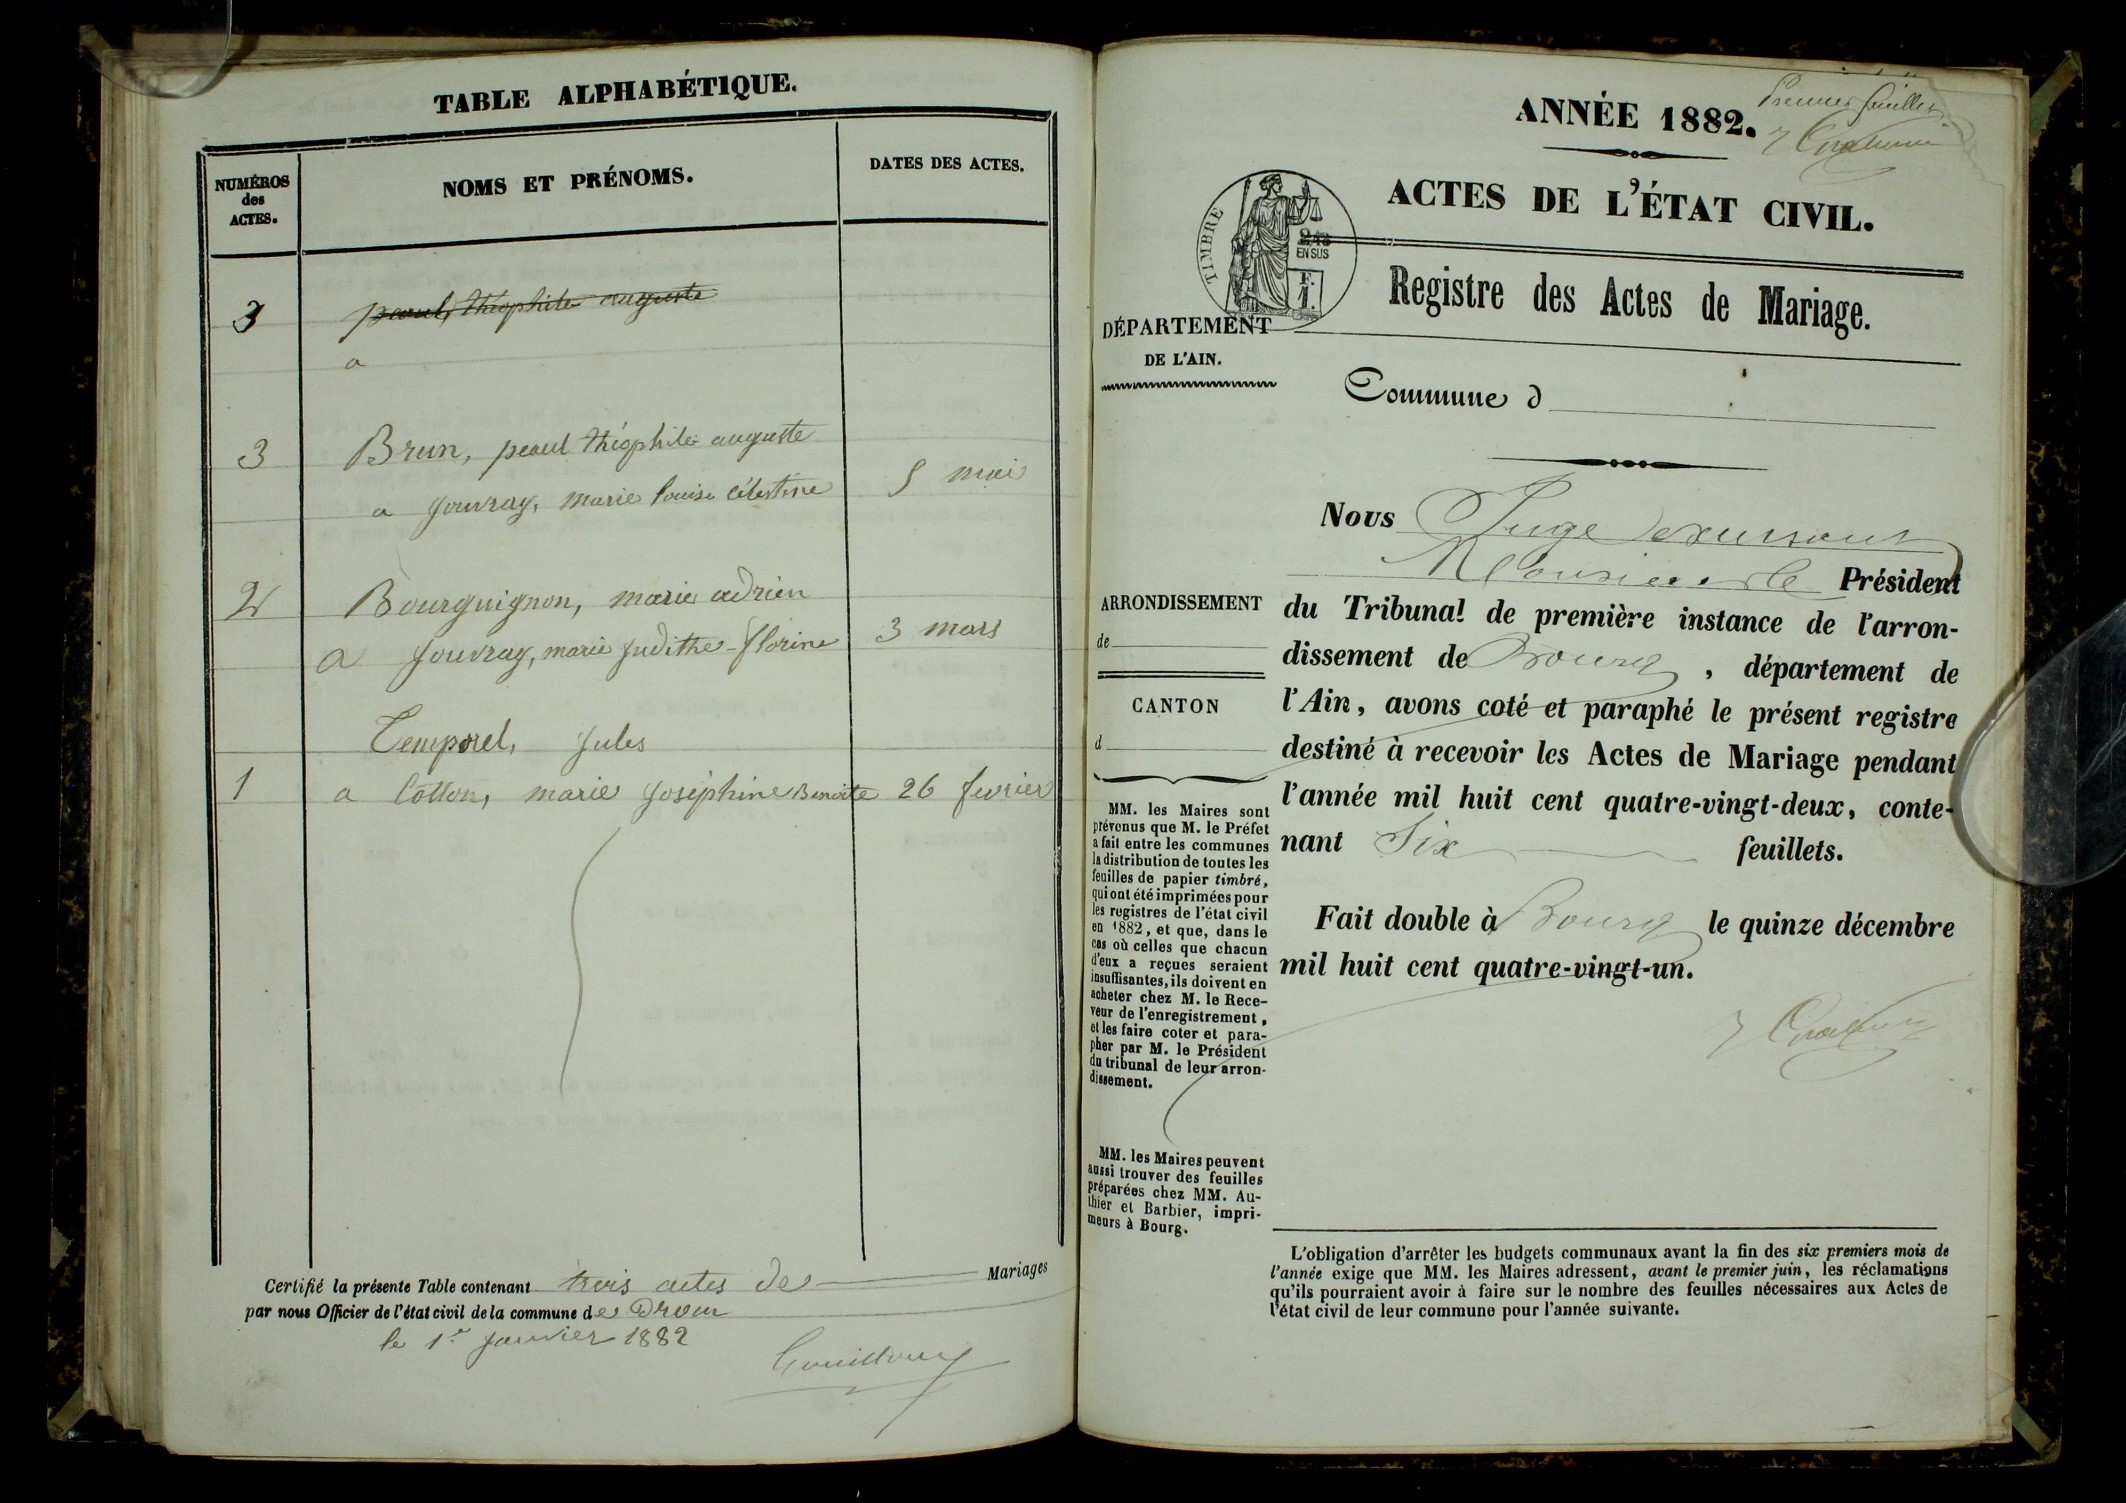 TABLE ALPHABÉTIQUE.
NUMÉROS
des
ACTES.
NOMS ET PRÉNOMS.
DATES DES ACTES.
3 paul, théophile auguste
a
3 Brun, paul théophile auguste
a Jouvray, marie louise célestine 5 mai
2 Bourguignon, marie adrien
a Jouvray, marie Judithe-florine 3 mars
Temporel, Jules
1 a Cotton, marie Joséphine Benoite 26 fevrier
Certifié la présente Table contenant trois actes de Mariages
par nous Officier de l'état civil de la commune de Drom
le 1er Janvier 1882
ANNÉE 1882.
Premier feuillet
ACTES DE L'ÉTAT CIVIL.
TIMBRE
EN SUS
F.
1.
Registre des Actes de Mariage.
DÉPARTEMENT
DE L'AIN.
Commune d
ARRONDISSEMENT
de
CANTON
d
MM. les Maires sont
prévenus que M. le Préfet
a fait entre les communes
la distribution de toutes les
feuilles de papier timbré,
qui ont été imprimées pour
les registres de l'état civil
en 1882, et que, dans le
cas où celles que chacun
d'eux a reçues seraient
insuffisantes, ils doivent en
acheter chez M. le Rece-
veur de l'enregistrement,
et les faire coter et para-
pher par M. le Président
du tribunal de leur arron-
dissement.
MM. les Maires peuvent
aussi trouver des feuilles
préparées chez MM. Au-
thier et Barbier, impri-
meurs à Bourg.
Nous Juge
Monsieur le Président
du Tribunal de première instance de l'arron-
dissement de Bourg, département de
l'Ain, avons coté et paraphé le présent registre
destiné à recevoir les Actes de Mariage pendant
l'année mil huit cent quatre-vingt-deux, conte-
nant Six feuillets.
Fait double à Bourg le quinze décembre
mil huit cent quatre-vingt-un.
L'obligation d'arrêter les budgets communaux avant la fin des six premiers mois de
l'année exige que MM. les Maires adressent, avant le premier juin, les réclamations
qu'ils pourraient avoir à faire sur le nombre des feuilles nécessaires aux Actes de
l'état civil de leur commune pour l'année suivante.